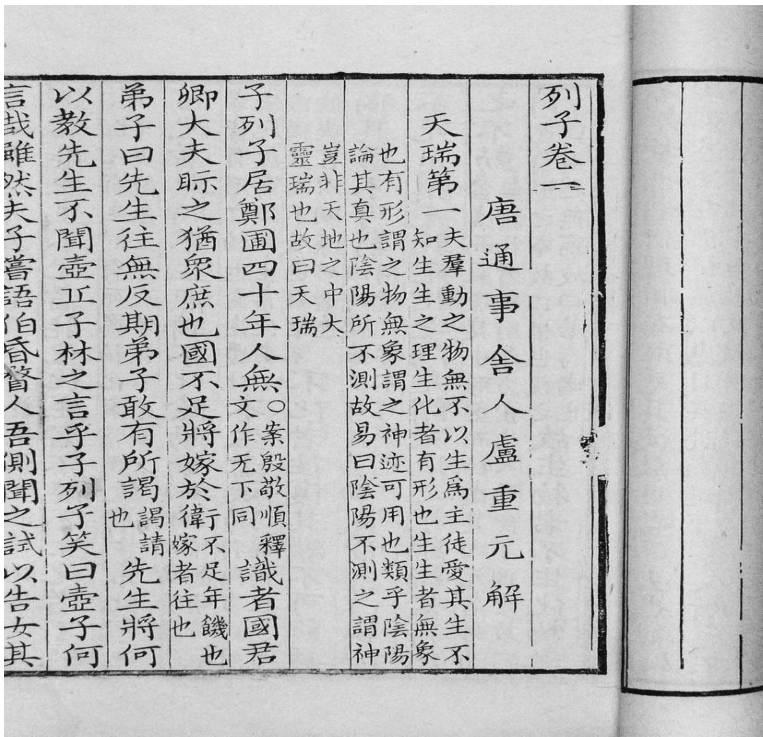 列子卷一
唐通事舍人盧重元解
天瑞第一夫羣動之物無不以生爲主徒愛其生不
知生生之理生化者有形也生生者無象
也有形謂之物無象謂之神迹可用也類乎陰陽
論其真也陰陽所不測故易曰陰陽不測之謂神
豈非天地之中大
靈瑞也故曰天瑞
子列子居鄭圃四十年人無○案殷敬順釋文作无下同識者國君
卿大夫眎之猶衆庶也國不足將嫁於衛不足年饑也嫁者往也
弟子曰先生往無反期弟子敢有所謁謁請也先生將何
以教先生不聞壺丘子林之言乎子列子笑曰壺子何
言哉雖然夫子嘗語伯昏瞀人吾側聞之試以告女其